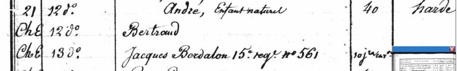 21 12 do. André, Enfant naturel 40 harde
Ch.E 12 do. Bertraud
Ch.E 13 do. Jacques Bordalon 15e. regt. no 561